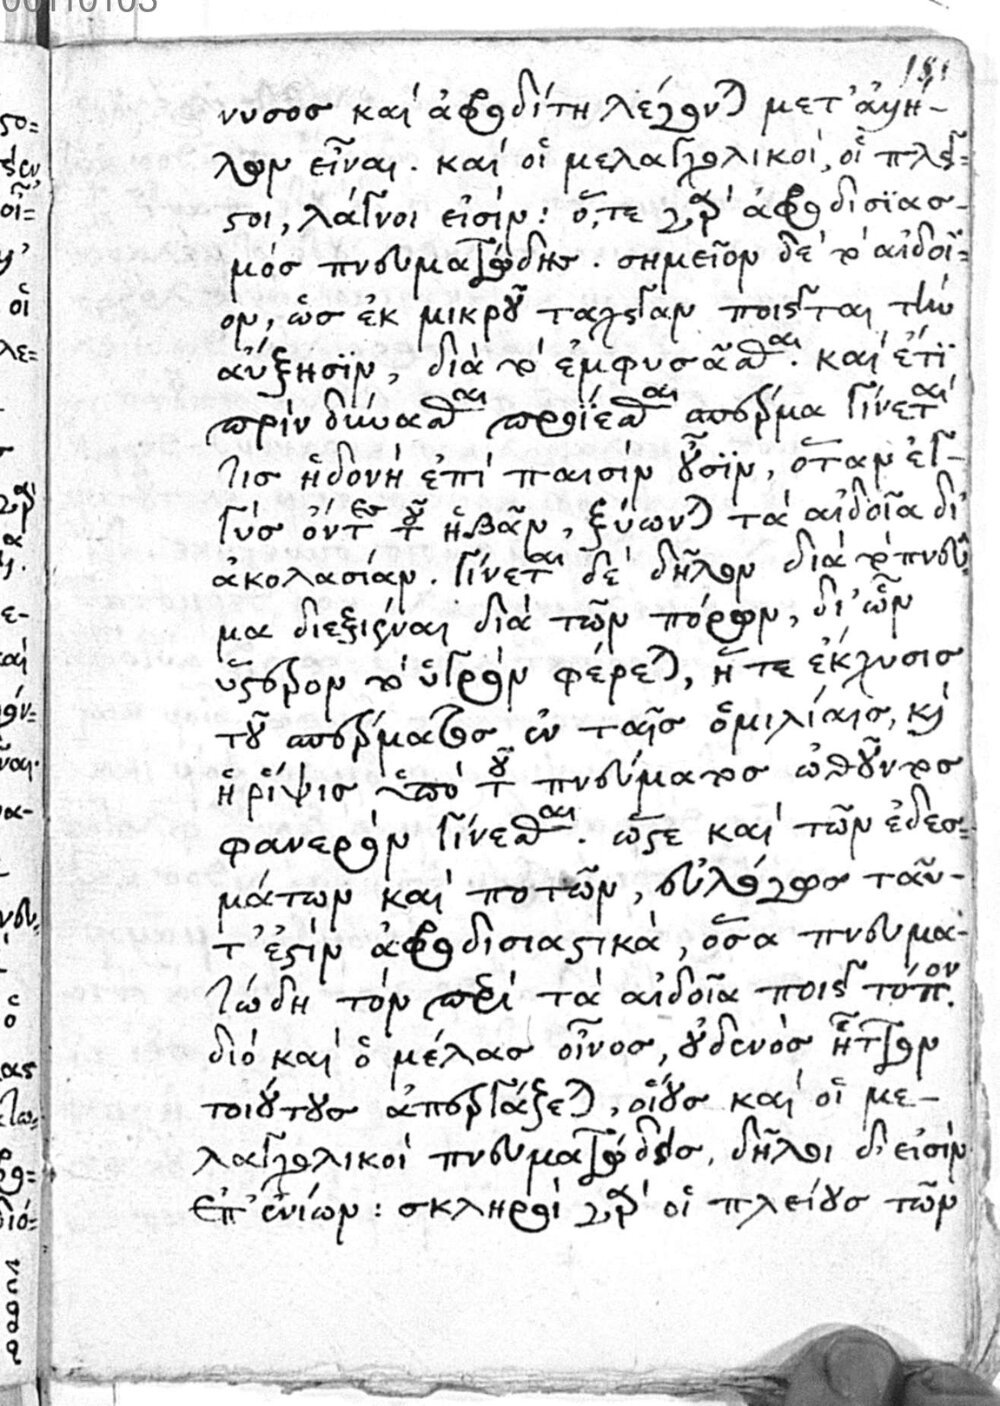 νυσος καὶ ἀφροδίτη λέγονται μετ' ἀλλή-
λων εἶναι. καὶ οἱ μελαγχολικοί, οἱ πλεῖ-
στοι, λάγνοι εἰσίν: ὅ,τε γὰρ ἀφροδισϊασ-
μός πνευματώδης. σημεῖον δὲ τὸ αἰδοῖ-
ον, ὡς ἐκ μικροῦ ταχεῖαν ποιεῖται τὴν
αὔξησϊν, διὰ τὸ ἐμφυσᾶσθαι. καὶ ἔτϊ
πρὶν δύνασθαι προΐεσθαι σπέρμα γίνεται
τις ἡδονὴ ἐπὶ παισὶν οὖσϊν, ὅταν ἐγ-
γύς ὄντες τοῦ ἡβᾶν, ξύωνται τὰ αἰδοῖα δι'
ἀκολασίαν. γίνεται δὲ δῆλον διὰ τὸ πνεῦ-
μα διεξιέναι διὰ τῶν πόρων, δι' ὧν
ὕστερον τὸ ὑγρὸν φέρεται, ἥ τε ἔκχυσις
τοῦ σπέρματος ἐν ταῖς ὁμιλίαις, καὶ
ἡ ῥίψις ὑπὸ τοῦ πνεύματος ὠθοῦντος
φανερὸν γίνεσθαι. ὥστε καὶ τῶν ἐδεσ-
μάτων καὶ ποτῶν, εὐλόγως ταῦ-
τ' ἐστὶν ἀφροδισιαστικὰ, ὅσα πνευμα-
τώδη τὸν περὶ τὰ αἰδοῖα ποιεῖ τόπον.
διό καὶ ὁ μέλας οἶνος, οὐδενὸς ἧττον
τοιούτους ἀπεργάζεται, οἵους καὶ οἱ με-
λαγχολικοί πνευματώδεις. δῆλοι δ' εἰσὶν
ἐπ' ἐνίων: σκληροὶ γὰρ οἱ πλείους τῶν